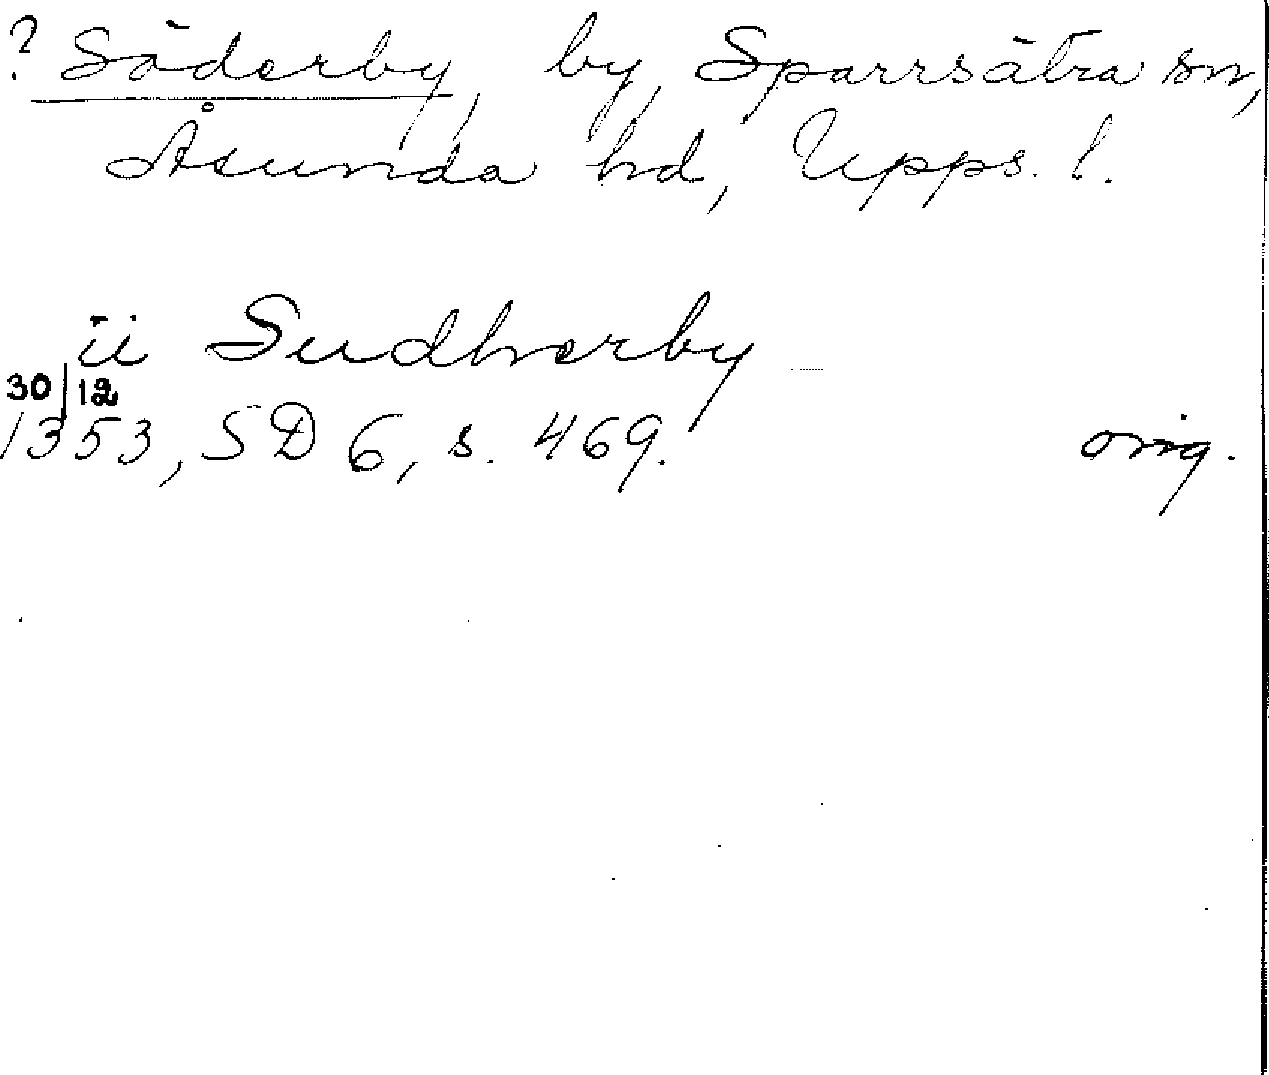 ? Söderby, by, Sparrsätra sn,
Åsunda hd, Upps. l.
ii Sudherby
30/12
1353, SD 6, s. 469. orig.